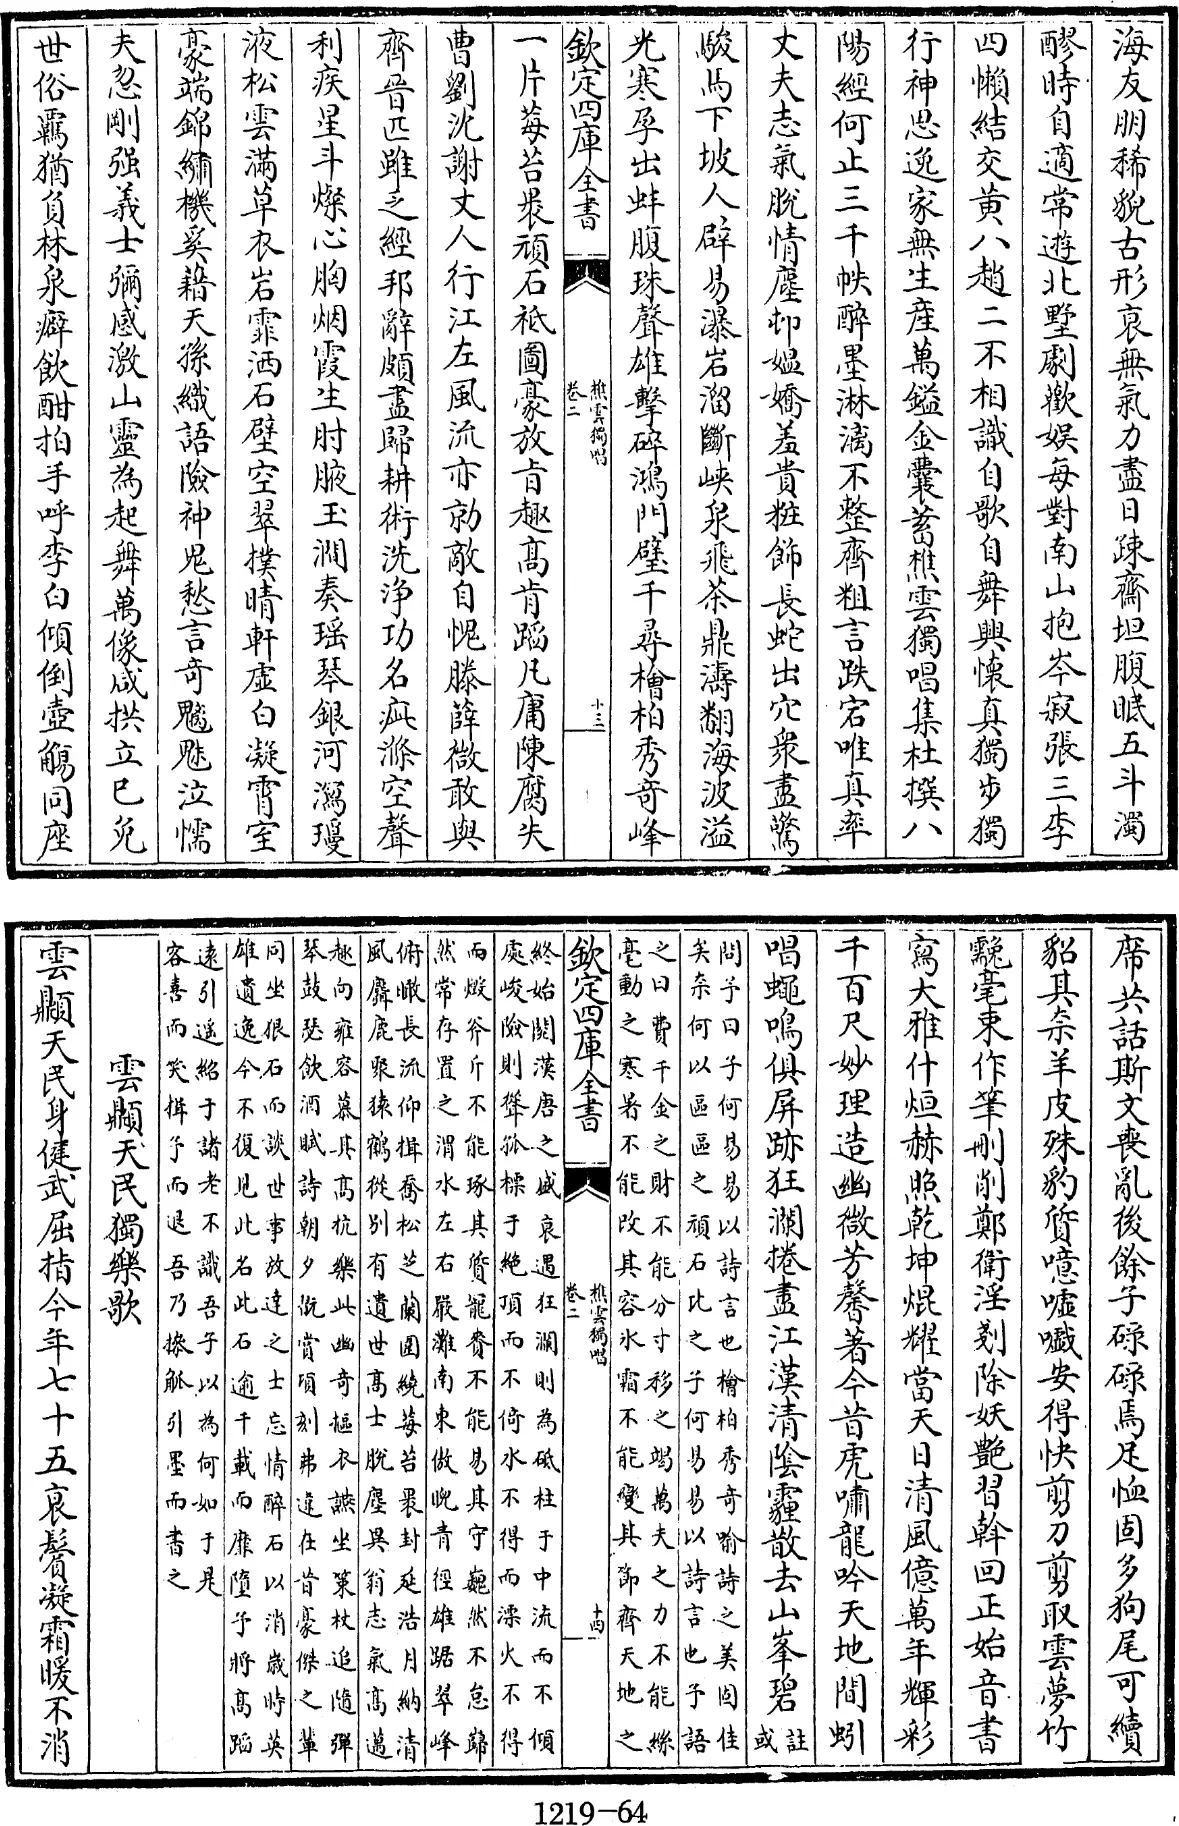 海友朋稀貌古形衰無氣力盡日疎齋坦腹眠五斗濁
醪時自適常遊北墅劇歡娛每對南山抱岑寂張三李
四懶結交黄八趙二不相識自歌自舞興懷真獨步獨
行神思逸家無生産萬鎰金囊蓄樵雲獨唱集杜撰八
陽經何止三千帙醉墨淋漓不整齊粗言跌宕唯真率
丈夫志氣脱情塵却媪嬌羞貴粧飾長蛇出穴衆盡驚
駿馬下坡人辟易瀑岩溜斷峽泉飛茶鼎濤翻海波溢
光寒孕出蚌腹珠聲雄擊碎鴻門璧千尋檜柏秀竒峰
欽定四庫全書
樵雲獨唱
卷二
十三
一片莓苔褁頑石祗圖豪放㫖趣髙肯蹈凡庸陳腐失
曹劉沈謝丈人行江左風流亦勍敵自愧滕薛㣲敢與
齊晉匹雖乏經邦辭頗盡歸耕術洗浄功名疵滌空聲
利疾星斗燦心胸烟霞生肘腋玉澗奏瑶琴銀河瀉瓊
液松雲滿草衣岩霏洒石壁空翠撲晴軒虚白凝霄室
豪端錦繡機奚藉天孫織語險神鬼愁言竒魑魅泣懦
夫忽剛强義士彌感激山靈為起舞萬像咸拱立已免
世俗羈猶負林泉癖飲酣拍手呼李白傾倒壺觴同座
席共話斯文喪亂後餘子碌碌焉足恤固多狗尾可續
貂其奈羊皮殊豹質噫嘘嚱安得快剪刀剪取雲夢竹
龝毫束作筆刪削鄭衛淫剗除妖艷習幹回正始音書
寫大雅什烜赫照乾坤焜耀當天日清風億萬年輝彩
千百尺妙理造幽㣲芳馨著今昔虎嘯龍吟天地間蚓
唱蠅鳴俱屏跡狂瀾捲盡江漢清陰霾散去山峯碧
註
或
問予曰子何易易以詩言也檜柏秀竒喻詩之美固佳
矣奈何以區區之頑石比之子何易易以詩言也予語
之曰費千金之財不能分寸移之竭萬夫之力不能絲
毫動之寒暑不能改其容氷霜不能變其節齊天地之
欽定四庫全書
樵雲獨唱
卷二
十四
終始閱漢唐之盛衰遇狂瀾則為砥柱于中流而不傾
處峻險則聳孤標于絶頂而不倚水不得而漂火不得
而燬斧斤不能琢其質寵賚不能易其守巍然不怠歸
然常存置之渭水左右嚴灘南東傲睨青徑雄踞翠峰
俯瞰長流仰揖喬松芝蘭圍繞莓苔褁封延浩月納清
風麟鹿聚猿鶴從别有遺世髙士脱塵異翁志氣髙邁
趣向雍容慕其髙抗樂此幽竒摳衣讌坐策杖追隨彈
琴鼓瑟飲酒賦詩朝夕翫賞頃刻弗違在昔豪傑之軰
同坐狠石而談世事放達之士忘情醉石以消歲時英
雄遺逸今不復見此名此石逾千載而靡墮予將髙蹈
逺引遥紹于諸老不識吾子以為何如于是
容喜而笑揖予而退吾乃㩦觚引墨而書之
雲顚天民獨樂歌
雲顚天民身健武屈指今年七十五衰鬢凝霜暖不消
1219-64